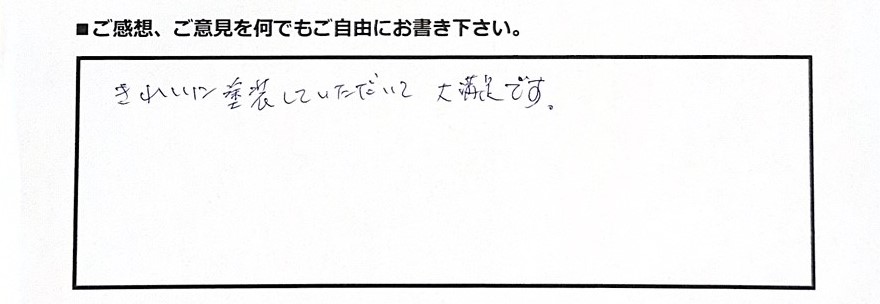 ■ご感想、ご意見を何でもご自由にお書き下さい。
きれいに塗装していただいて 大満足です。